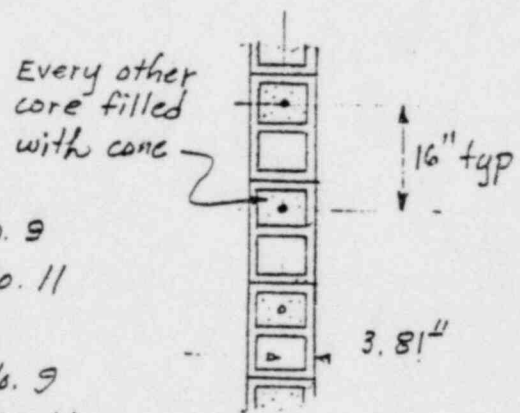 Every other
core filled
with conc
16" typ
. 9
o. 11
3.81"
o. 9